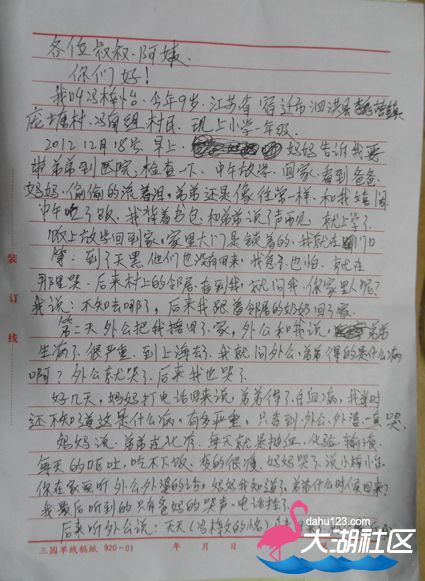 各位叔叔.阿姨.
你们好!
我叫冯梓怡.今年9岁.江苏省宿迁市泗洪县魏营镇
庞塘村.冯圩组村民.现上小学一年级.
2012.12月18号.早上.妈妈告诉我要
带弟弟到医院检查一下.中午放学.回家.看到爸爸.
妈妈.偷偷的流着泪.弟弟还是像往常一样.和我嬉闹
中午吃了饭.我背着书包.和弟弟说了声再见.就上学了.
晚上放学回到家.家里大门是锁着的.我就在门口
等.到了天黑.他们也没有回来.我急又也怕.就在
那里哭.后来村上的邻居.看到我.就问我.你家里人呢?
我说:不知去哪了.后来我跟着邻居的奶奶回了家.
第二天外公把我接回了家.外公和我说.弟弟
生病了.很严重.到上海去了.我就问外公.弟弟得的是什么病
啊?外公就哭了.后来我也哭了.
好几天.妈妈打电话回来说.弟弟得了白血病.我当时
还不知道这是什么病.有多严重.只看到外公.外婆一直哭.
妈妈说.弟弟在化疗.每天就是抽血.化验.输液.
每天的呕吐.吃不下饭.瘦的很快.妈妈哭了.说小梓怡.
你在家要听外公外婆的话.妈妈我知道了.弟弟什么时候回来?
我最后听到的只有妈妈的哭声.电话挂了.
后来听外公说:天天(冯梓
装订线
三园单线稿纸 920-01 年 月 日
dahu123.com
大湖社区